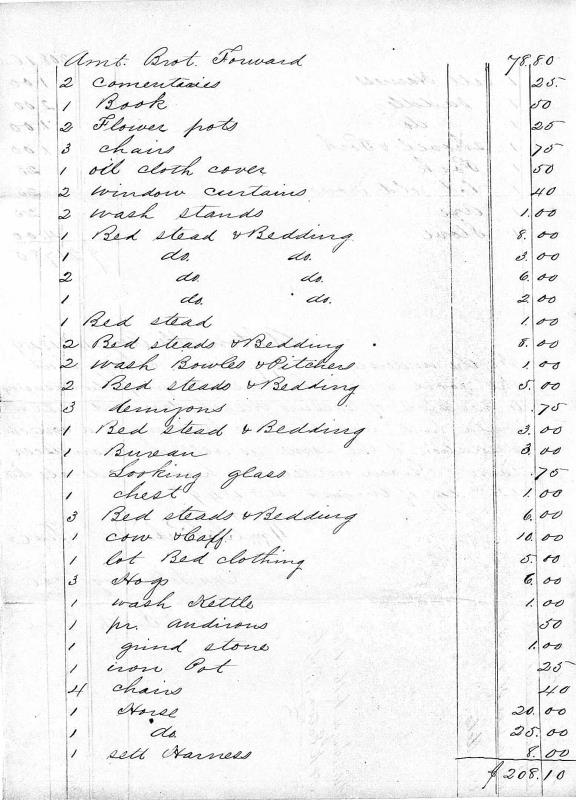 Amt. Brot. Forward 78.80
2 comentaries 25.
1 Book 50
2 Flower pots 25
3 chairs 75
1 oil cloth cover 50
2 window curtains 40
2 wash stands 1.00
1 Bed stead & Bedding 8.00
1 do. do. 3.00
2 do. do. 6.00
1 do. do. 2.00
1 Bed stead 1.00
2 Bed steads & Bedding 8.00
2 wash Bowles & Pitchers 1.00
2 Bed steads & Bedding 5.00
3 demijons .75
1 Bed stead & Bedding 3.00
1 Bureau 3.00
1 Looking glass .75
1 chest 1.00
3 Bed steads & Bedding 6.00
1 cow & Caff. 10.00
1 lot Bed clothing 5.00
3 Hogs 6.00
1 wash Kettle 1.00
1 pr. andirons 50
1 grind stone 1.00
1 iron Pot 25
4 chairs 40
1 Horse 20.00
1 do 25.00
1 sett Harness 8.00
$208.10